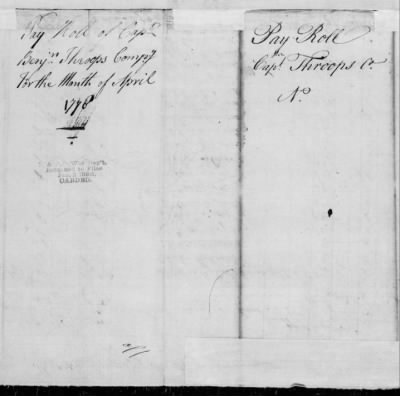 Pay Roll of Capt
Benjn Throops Compy
for the Month of April
1778
CARDED.
Pay Roll
Capt Throops Co
No